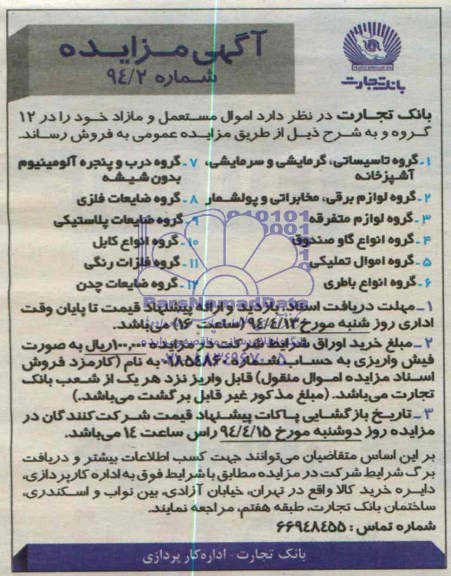 آگهی مزایده
شماره ۹۴/۲
بانک تجارت
بانک تجارت در نظر دارد اموال مستعمل و مازاد خود را در ۱۲
گروه و به شرح ذیل از طریق مزایده عمومی به فروش رساند.
۱ـ گروه تاسیساتی، گرمایشی و سرمایشی، ۷ـ گروه درب و پنجره آلومینیوم
آشپزخانه بدون شیشه
۲ـ گروه لوازم برقی، مخابراتی و پولشمار ۸ـ گروه ضایعات فلزی
۳ـ گروه لوازم متفرقه ۹ـ گروه ضایعات پلاستیکی
۴ـ گروه انواع گاو صندوق ۱۰ـ گروه انواع کابل
۵ـ گروه اموال تملیکی ۱۱ـ گروه فلزات رنگی
۶ـ گروه انواع باطری ۱۲ـ گروه ضایعات چدن
۱ـ مهلت دریافت اسناد، بازدید و ارائه پیشنهاد قیمت تا پایان وقت
اداری روز شنبه مورخ ۹۴/۴/۱۳ (ساعت ۱۶) می‌باشد.
۲ـ مبلغ خرید اوراق شرایط شرکت در مزایده ۱۰۰،۰۰۰ریال به صورت
فیش واریزی به حساب شماره به نام (کارمزد فروش
اسناد مزایده اموال منقول) قابل واریز نزد هر یک از شعب بانک
تجارت می‌باشد. (مبلغ مذکور غیر قابل برگشت می‌باشد.)
۳ـ تاریخ بازگشایی پاکات پیشنهاد قیمت شرکت کنندگان در
مزایده روز دوشنبه مورخ ۹۴/۴/۱۵ راس ساعت ۱۴ می‌باشد.
بر این اساس متقاضیان می‌توانند جهت کسب اطلاعات بیشتر و دریافت
برگ شرایط شرکت در مزایده مطابق با شرایط فوق به اداره کارپردازی،
دایره خرید کالا واقع در تهران، خیابان آزادی، بین نواب و اسکندری،
ساختمان بانک تجارت، طبقه هفتم، مراجعه نمایند.
شماره تماس : ۶۶۹۴۸۴۵۵
بانک تجارت - اداره کارپردازی